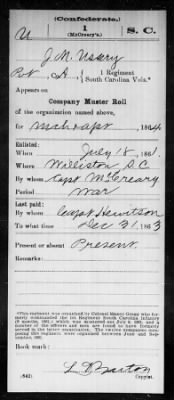 (Confederate.)
U 1 S. C.
(McCreary's).
J. M. Ussery
Pvt, A, 1 Regiment
South Carolina Vols.*
Appears on
Company Muster Roll
of the organization named above,
for Mch & Apr, 1864
Enlisted:
When July 18, 1861.
Where Williston S.C.
By whom Capt McCreary
Period War
Last paid:
By whom Capt Hewitson
To what time Dec 31, 1863
Present or absent Present
Remarks:
Book mark:
L D Barton
(642) Copyist.